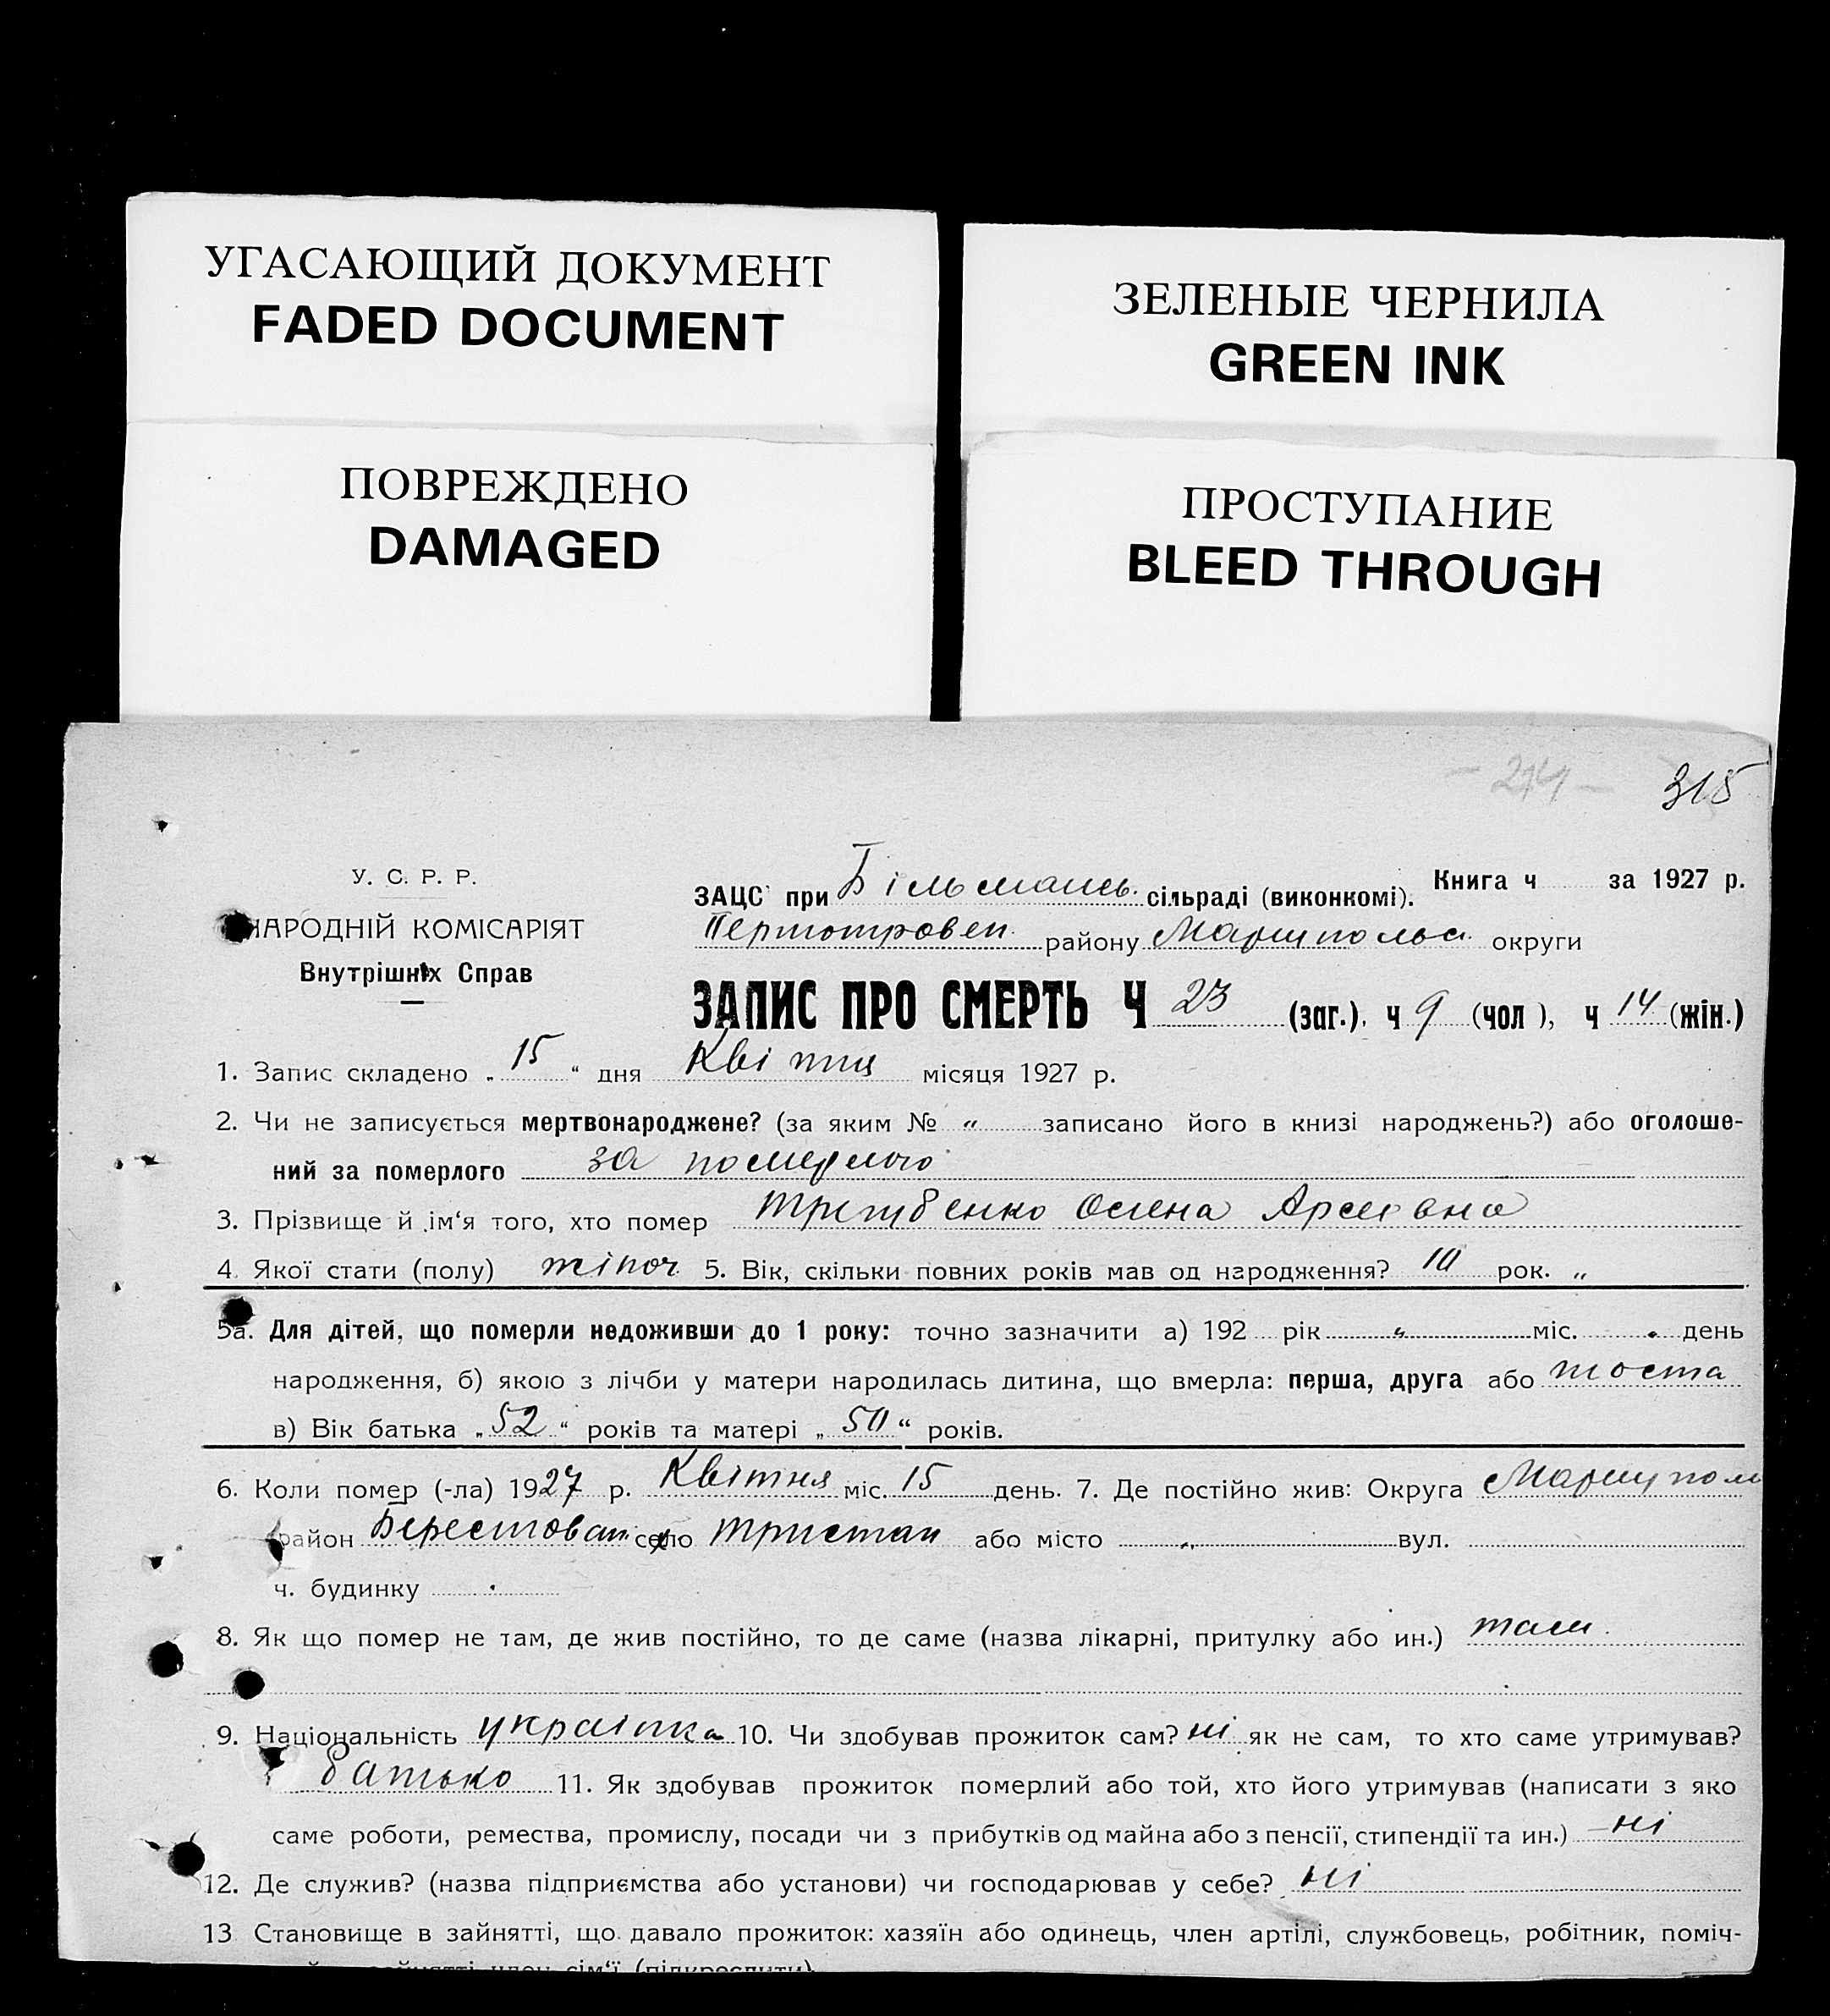 УГАСАЮЩИЙ ДОКУМЕНТ
FADED DOCUMENT
ЗЕЛЕНЫЕ ЧЕРНИЛА
GREEN INK
ПОВРЕЖДЕНО
DAMAGED
ПРОСТУПАНИЕ
BLEED THROUGH
315
У. С. Р. Р.
НАРОДНІЙ КОМІСАРІЯТ
Внутрішніх Справ
ЗАЦС при Більмансь. сільраді (виконкомі). Книга ч за 1927 р.
району Маріупольс. округи
ЗАПИС ПРО СМЕРТЬ Ч 23 (заг.), ч 9 (чол), ч 14 (жін.)
1. Запис складено „ 15 “ дня Квітня місяця 1927 р.
2. Чи не записується мертвонароджене? (за яким № „ записано його в книзі народжень?) або оголоше-
ний за померлого за померлого
3. Прізвище й ім‘я того, хто помер Орсенa
4. Якої стати (полу) жіноч. 5. Вік, скільки повних років мав од народження? 10 рок. „
5а. Для дітей, що померли недоживши до 1 року: точно зазначити а) 192 рік „ міс. день
народження, б) якою з лічби у матери народилась дитина, що вмерла: перша, друга або шоста
в) Вік батька „ 52 “ років та матері „ 50 “ років.
6. Коли помер (-ла) 1927 р. Квітня міс. 15 день. 7. Де постійно жив: Округа Маріуполь
район Берестован. село Тристан або місто „ вул.
ч. будинку
8. Як що помер не там, де жив постійно, то де саме (назва лікарні, притулку або ин.) там.
9. Національність українка 10. Чи здобував прожиток сам? ні як не сам, то хто саме утримував?
батько 11. Як здобував прожиток померлий або той, хто його утримував (написати з яко
саме роботи, ремества, промислу, посади чи з прибутків од майна або з пенсії, стипендії та ин.) ні
12. Де служив? (назва підприємства або установи) чи господарював у себе? ні
13 Становище в зайнятті, що давало прожиток: хазяїн або одинець, член артілі, службовець, робітник, поміч-
член сім‘ї (підкреслити)